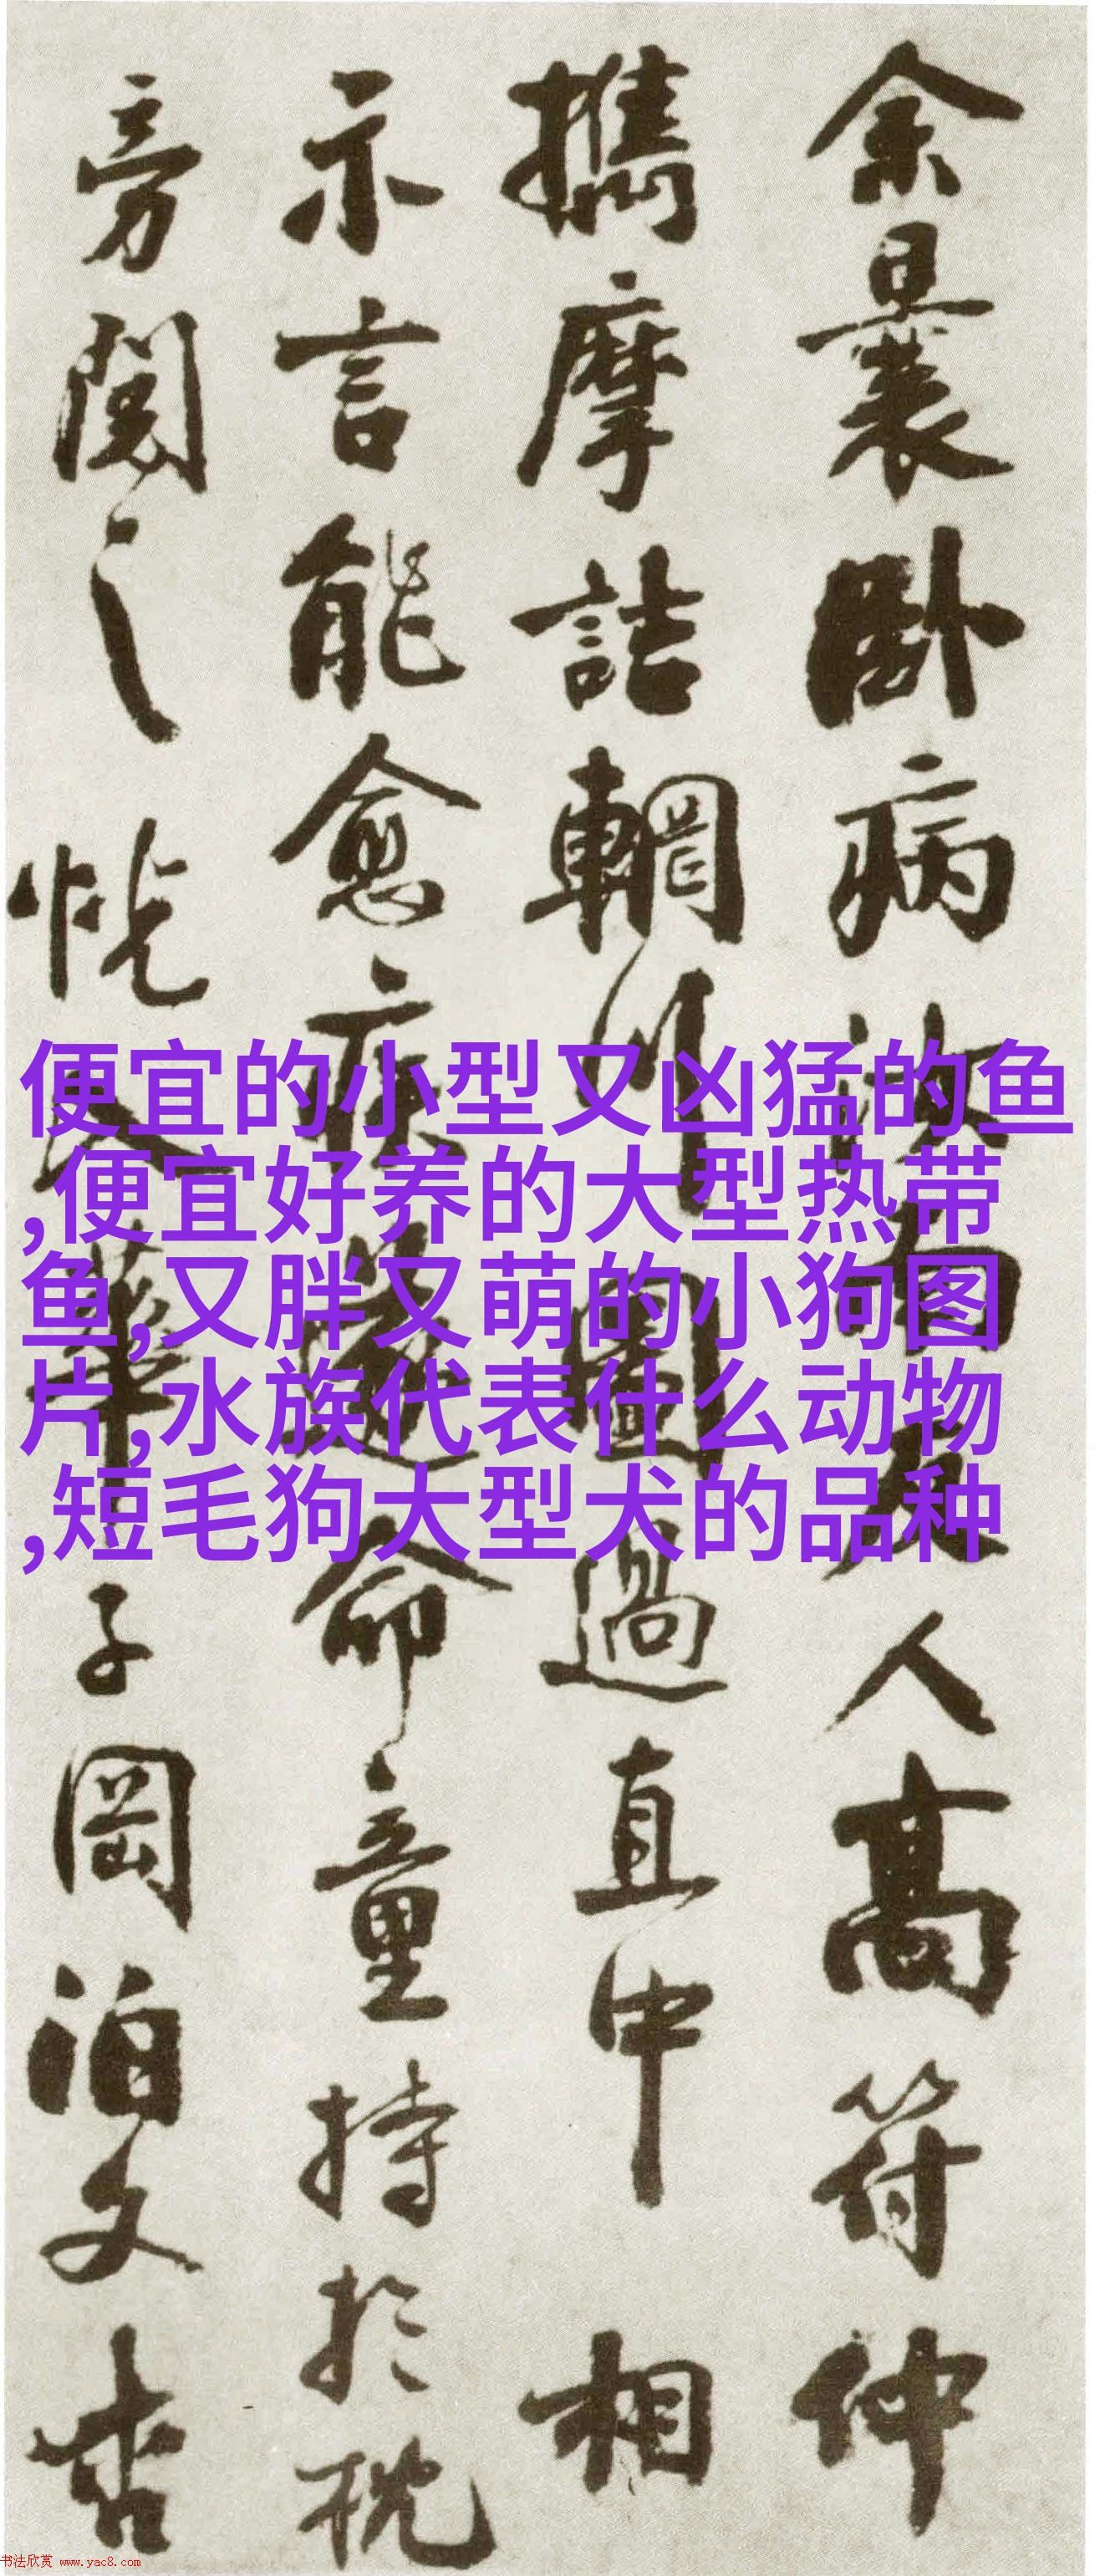 余曩卧病汝南友人高符仲
攜摩詰輞川圖過直中相
示言能愈疾遂命童持於枕
旁閱之恍入華子岡泊文杏
便宜的小型又凶猛的鱼
,便宜好养的大型热带
鱼,又胖又萌的小狗图
片,水族代表什么动物
,短毛狗大型犬的品种
书法欣赏 www.yac8.com